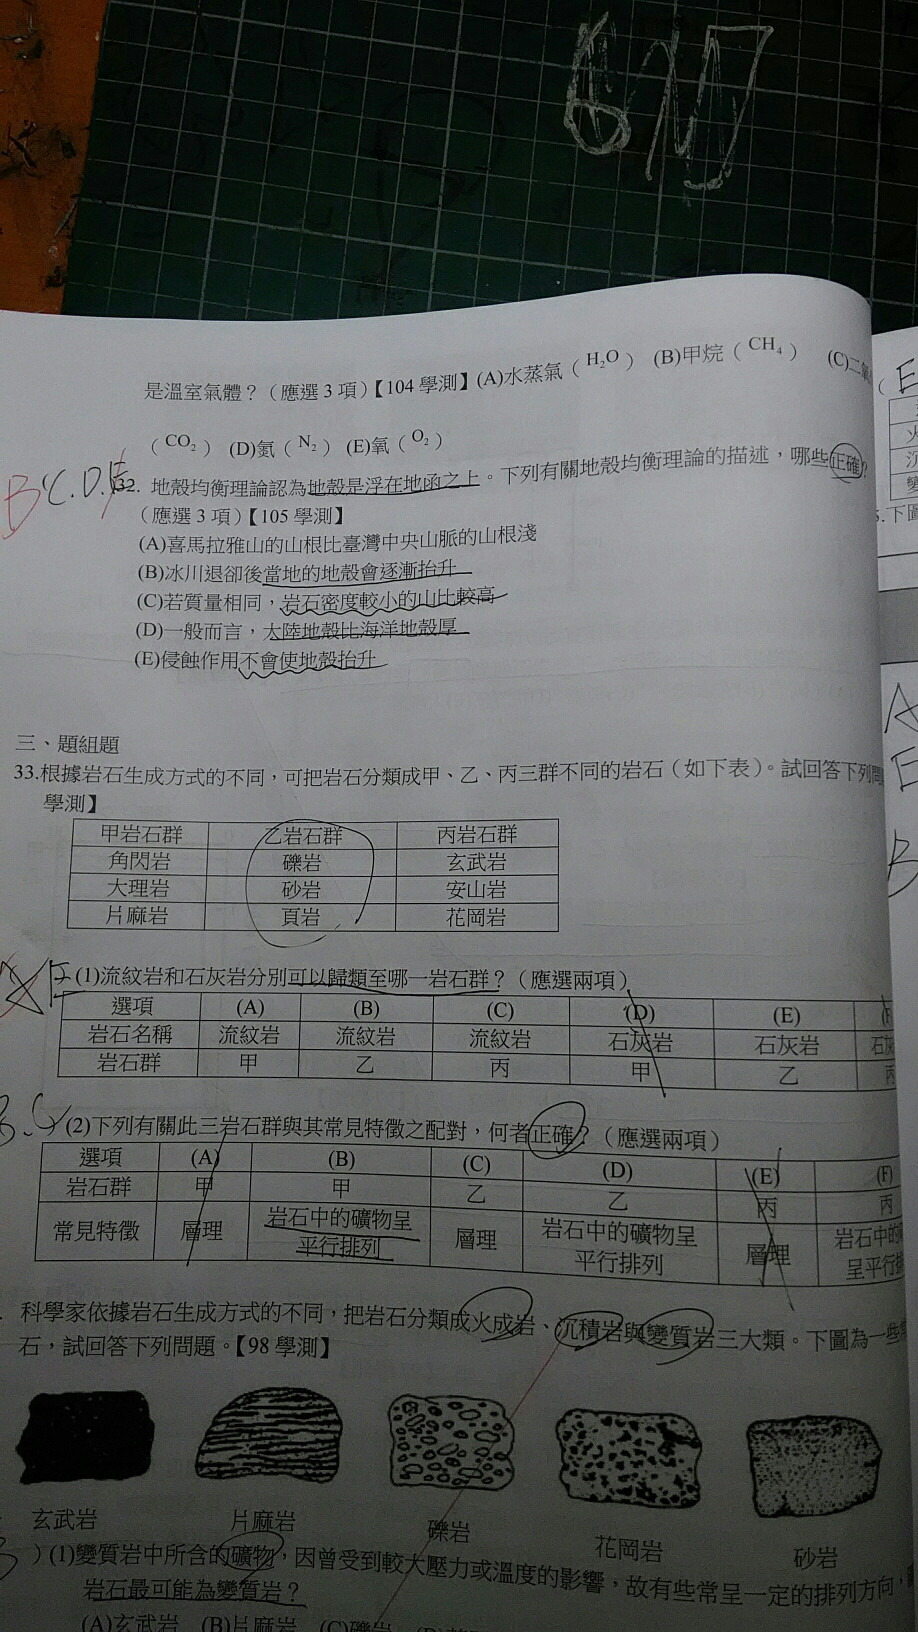 是溫室氣體？（應選 3 項）【104 學測】(A)水蒸氣（H₂O） (B)甲烷（CH₄） (C)二氧
（CO₂） (D)氮（N₂） (E)氧（O₂）
B C.D.E
32. 地殼均衡理論認為地殼是浮在地函之上。下列有關地殼均衡理論的描述，哪些正確？
（應選 3 項）【105 學測】
(A)喜馬拉雅山的山根比臺灣中央山脈的山根淺
(B)冰川退卻後當地的地殼會逐漸抬升
(C)若質量相同，岩石密度較小的山比較高
(D)一般而言，大陸地殼比海洋地殼厚
(E)侵蝕作用不會使地殼抬升
三、題組題
33.根據岩石生成方式的不同，可把岩石分類成甲、乙、丙三群不同的岩石（如下表）。試回答下列問
學測】
甲岩石群 乙岩石群 丙岩石群
角閃岩 礫岩 玄武岩
大理岩 砂岩 安山岩
片麻岩 頁岩 花岡岩
(1)流紋岩和石灰岩分別可以歸類至哪一岩石群？（應選兩項）
選項 (A) (B) (C) (D) (E) (F
岩石名稱 流紋岩 流紋岩 流紋岩 石灰岩 石灰岩 石灰
岩石群 甲 乙 丙 甲 乙 丙
(2)下列有關此三岩石群與其常見特徵之配對，何者正確？（應選兩項）
選項 (A) (B) (C) (D) (E) (F)
岩石群 甲 甲 乙 乙 丙 丙
常見特徵 層理 岩石中的礦物呈平行排列 層理 岩石中的礦物呈平行排列 層理 岩石中的 呈平行
科學家依據岩石生成方式的不同，把岩石分類成火成岩、沉積岩與變質岩三大類。下圖為一些
石，試回答下列問題。【98 學測】
玄武岩 片麻岩 礫岩 花岡岩 砂岩
）(1)變質岩中所含的礦物，因曾受到較大壓力或溫度的影響，故有些常呈一定的排列方向，
岩石最可能為變質岩？
(A)玄武岩 (B)片麻岩 (C)礫岩